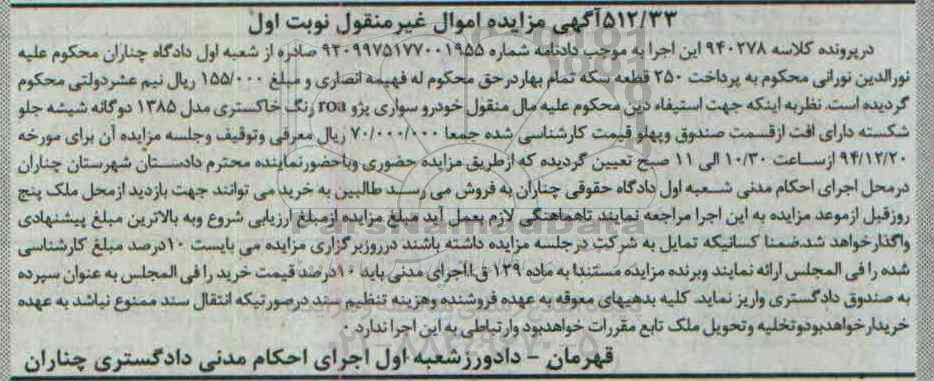 ۵۱۲/۳۳آگهی مزایده اموال غیرمنقول نوبت اول
درپرونده کلاسه ۹۴۰۲۷۸ این اجرا به موجب دادنامه شماره ۹۳۰۹۹۷۵۱۷۷۰۰۱۹۵۵ صادره از شعبه اول دادگاه چناران محکوم علیه
نورالدین نورانی محکوم به پرداخت ۲۵۰ قطعه سکه تمام بهاردرحق محکوم له فهیمه انصاری و مبلغ ۱۵۵/۰۰۰ ریال نیم عشردولتی محکوم
گردیده است. نظربه اینکه جهت استیفاء دین محکوم علیه مال منقول خودرو سواری پژو roa رنگ خاکستری مدل ۱۳۸۵ دوگانه شیشه جلو
شکسته دارای افت ازقسمت صندوق وپهلو قیمت کارشناسی شده جمعا ۷۰/۰۰۰/۰۰۰ ریال معرفی وتوقیف وجلسه مزایده آن برای مورخه
۹۴/۱۲/۲۰ ازساعت ۱۰/۳۰ الی ۱۱ صبح تعیین گردیده که ازطریق مزایده حضوری وباحضورنماینده محترم دادستان شهرستان چناران
درمحل اجرای احکام مدنی شعبه اول دادگاه حقوقی چناران به فروش می رسد طالبین به خرید می توانند جهت بازدید ازمحل ملک پنج
روزقبل ازموعد مزایده به این اجرا مراجعه نمایند تاهماهنگی لازم بعمل آید مبلغ مزایده ازمبلغ ارزیابی شروع وبه بالاترین مبلغ پیشنهادی
واگذارخواهد شد.ضمنا کسانیکه تمایل به شرکت درجلسه مزایده داشته باشند درروزبرگزاری مزایده می بایست ۱۰درصد مبلغ کارشناسی
شده را فی المجلس ارائه نمایند وبرنده مزایده مستندا به ماده ۱۲۹ ق.ا.اجرای مدنی باید ۱۰درصد قیمت خرید را فی المجلس به عنوان سپرده
به صندوق دادگستری واریز نماید. کلیه بدهیهای معوقه به عهده فروشنده وهزینه تنظیم سند درصورتیکه انتقال سند ممنوع نباشد به عهده
خریدارخواهدبودوتخلیه وتحویل ملک تابع مقررات خواهدبود وارتباطی به این اجرا ندارد .
قهرمان - دادورزشعبه اول اجرای احکام مدنی دادگستری چناران
ParsNamadData